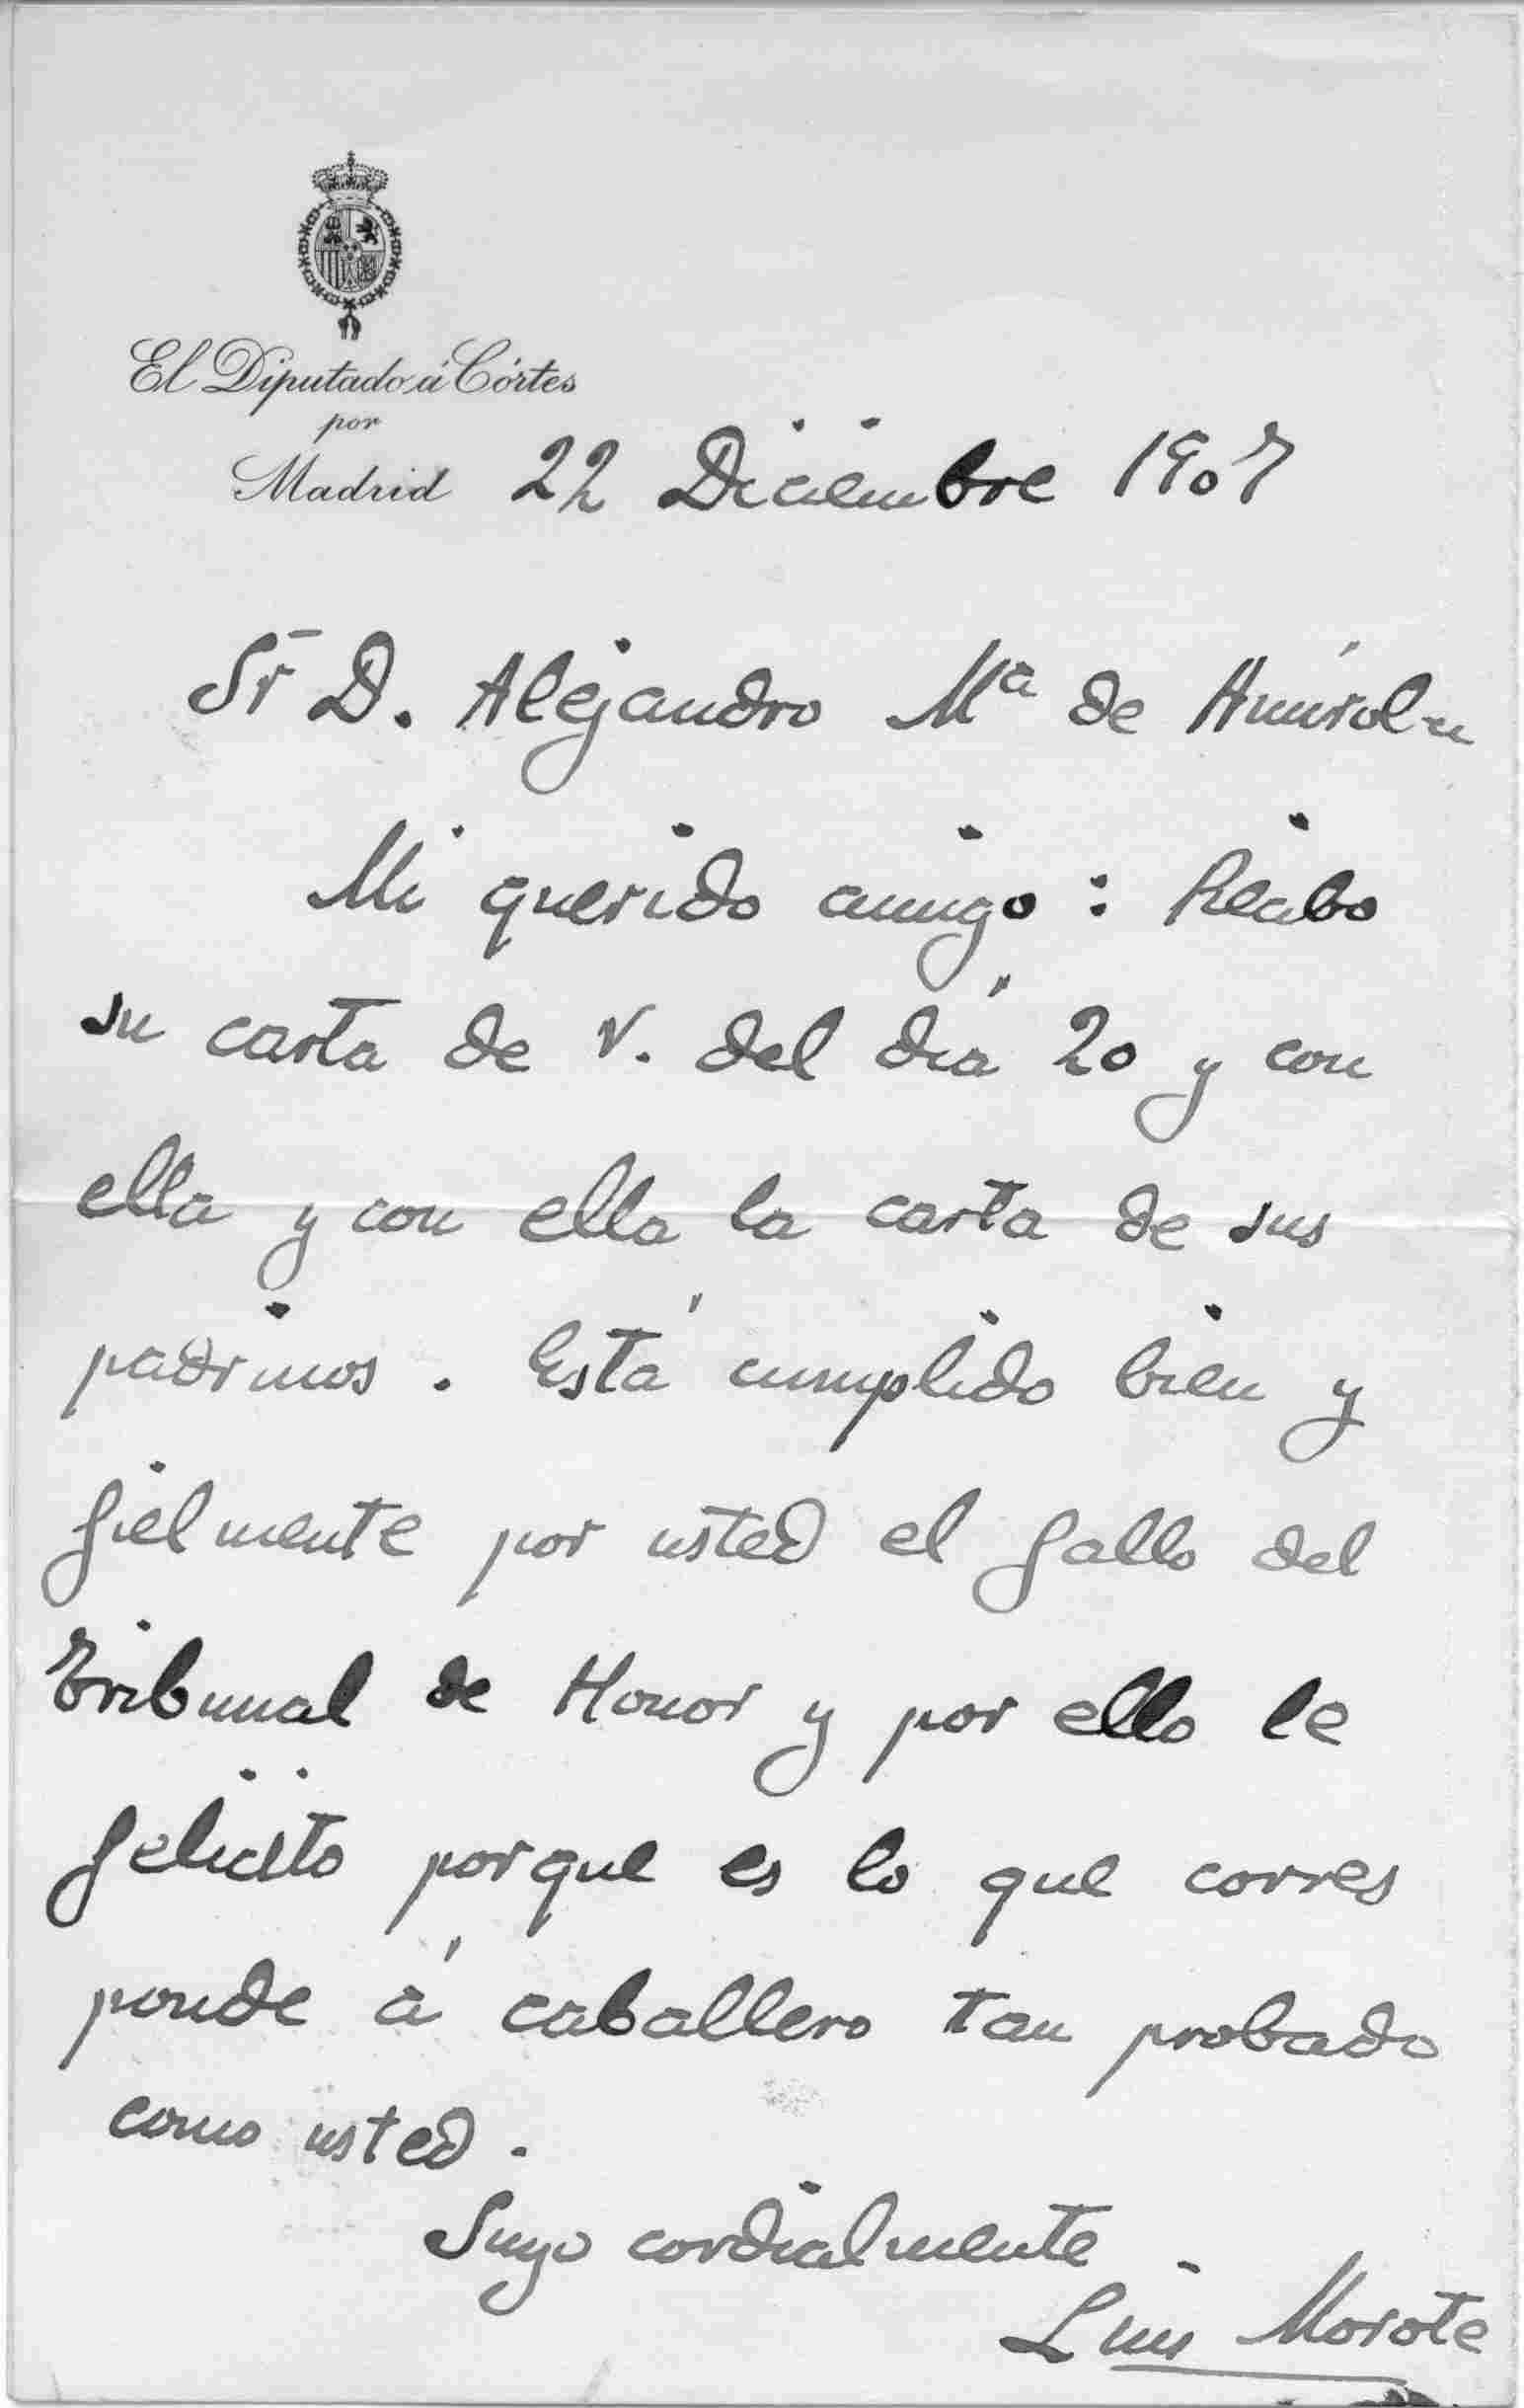 El Diputado á Córtes
por
Madrid 22 Diciembre 1907
Sr D. Alejandro Mª de
Mi querido amigo: Recibo
su carta de V. del día 20 y con
ella y con ella la carta de sus
padrinos. Está cumplido bien y
fielmente por usted el fallo del
Tribunal de Honor y por ello le
felicito porque es lo que corres
ponde á caballero tan probado
como usted.
Suyo cordialmente
Luis Morote